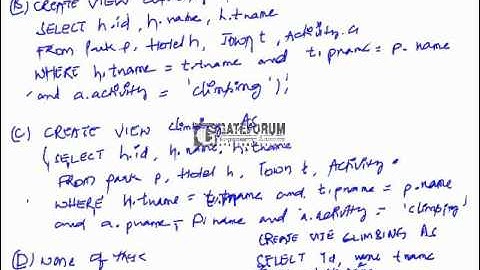 (B) CREATE VIEW
SELECT h.id, h.name, h.tname
FROM Park p, Hotel h, Town t, Activity a
WHERE h.tname = t.tname and t.pname = p.name
and a.activity = 'climbing');
(C) CREATE VIEW climbing AS
(SELECT h.id, h.name, h.tname
FROM park p, Hotel h, Town t, Activity a
WHERE h.tname = t.tname and t.pname = p.name
and a.pname = p.name and a.activity = 'climbing')
GATEFORUM
(D) None of these
CREATE VIE CLIMBING AS
SELECT id, tname